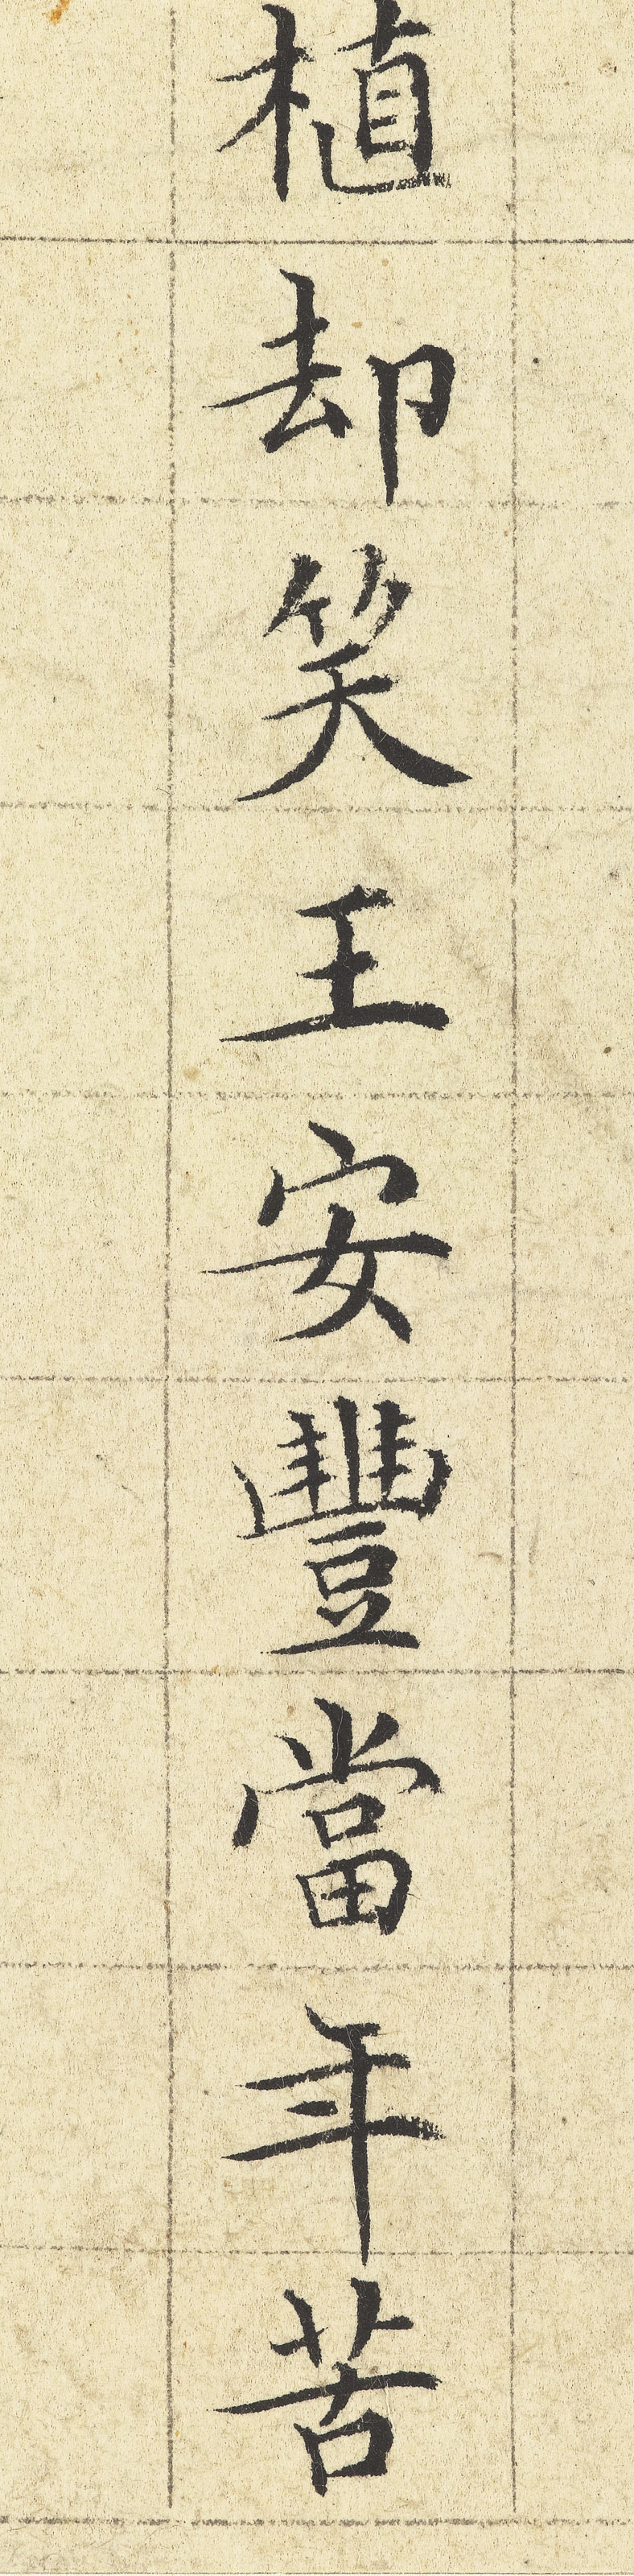 植却笑王安豐當年苦